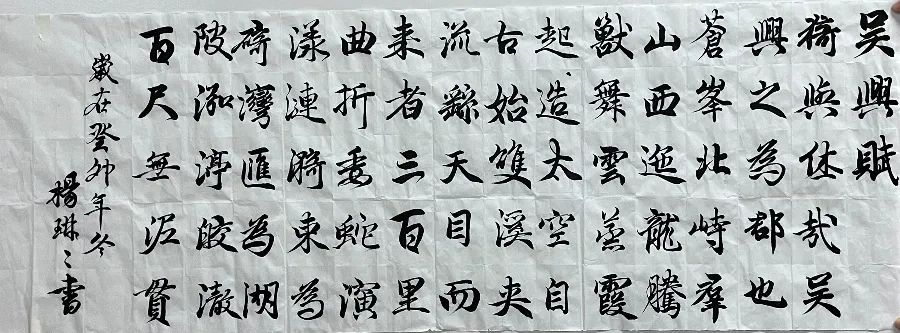 吴興賦
猗與休哉吴
興之為郡也
蒼峯北峙羣
山西迤龍騰
獸舞雲蒸霞
起造太空自
古始雙溪夾
流繇天目而
来者三百里
曲折委蛇演
漾漣漪東為
碕灣匯為湖
陂泓渟皎澈
百尺無泥貫
歲在癸卯年冬
楊琳〻書